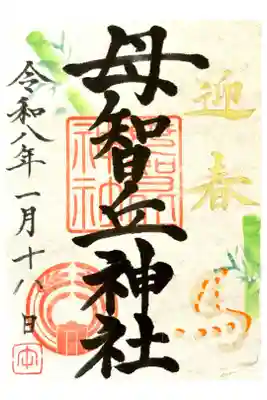 迎春
母智丘神社
令和八年一月十八日